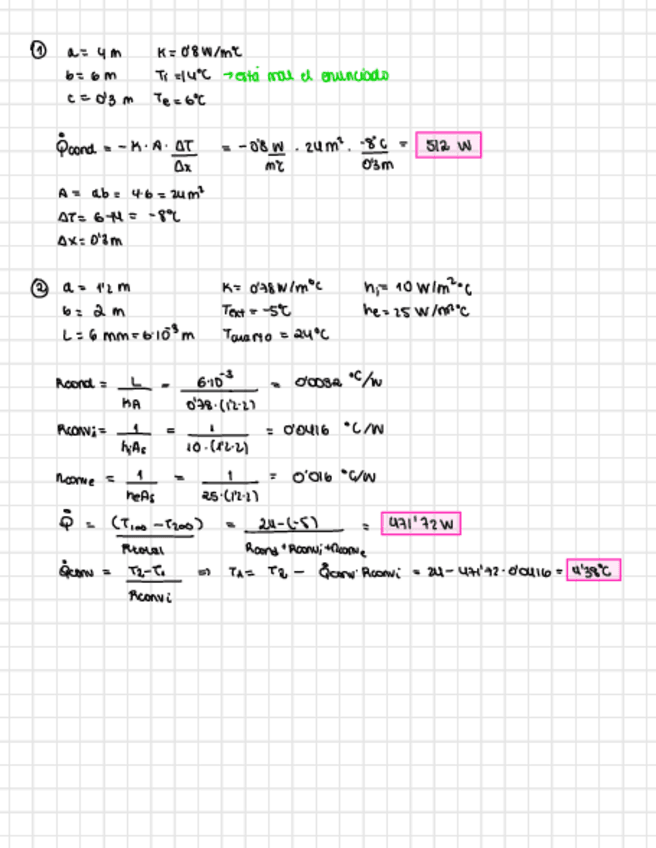 ① a = 4 m K = 0'8 W/m°C
b = 6 m T₁ = 14°C → está mal el enunciado
c = 0'3 m Te = 6°C
Q̇cond = -K · A · ΔT/Δx = -0'8 W/m°C · 24 m² · -8°C/0'3m = 512 W
A = ab = 4·6 = 24 m²
ΔT = 6-14 = -8°C
Δx = 0'3m
② a = 1'2 m K = 0'78 W/m°C hi = 10 W/m²·°C
b = 2 m Text = -5°C he = 25 W/m²°C
L = 6 mm = 6·10⁻³ m Tcuarto = 24°C
Rcond = L/KA = 6·10⁻³/0'78·(1'2·2) = 0'0032 °C/W
Rconvi = 1/hiAs = 1/10·(1'2·2) = 0'0416 °C/W
Rconve = 1/heAs = 1/25·(1'2·2) = 0'016 °C/W
Q̇ = (T∞₁ - T∞₂)/Rtotal = 24-(-5)/Rcond + Rconvi + Rconve = 471'72 W
Q̇conv = T₂-T₁/Rconvi ⇒ T₁ = T₂ - Q̇conv · Rconvi = 24 - 471'72 · 0'0416 = 4'38°C